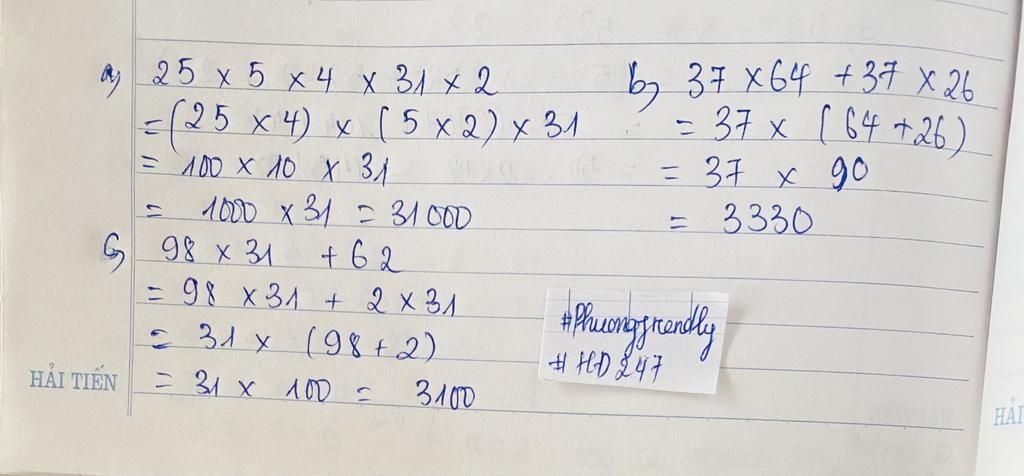 a, 25 × 5 × 4 × 31 × 2
= (25 × 4) × (5 × 2) × 31
= 100 × 10 × 31
= 1000 × 31 = 31000
b, 37 × 64 + 37 × 26
= 37 × (64 + 26)
= 37 × 90
= 3330
c, 98 × 31 + 62
= 98 × 31 + 2 × 31
= 31 × (98 + 2)
= 31 × 100 = 3100
#Phuongfrendly
#HD247
HẢI TIẾN
HẢI